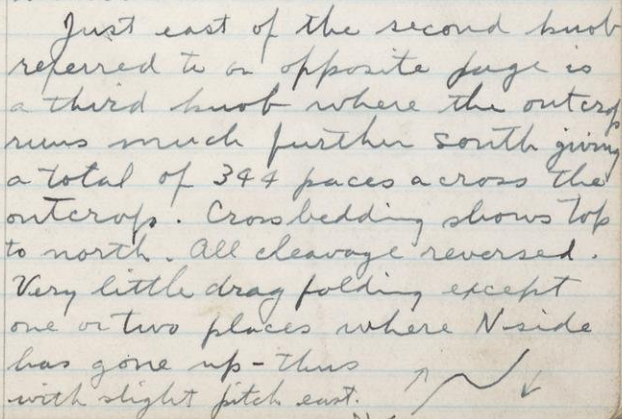 Just east of the second knob
referred to on opposite page is
a third knob where the outcrop
runs much further south giving
a total of 344 paces across the
outcrop. Crossbedding shows top
to north. All cleavage reversed.
Very little drag folding except
one or two places where N-side
has gone up - thus
with slight pitch east.